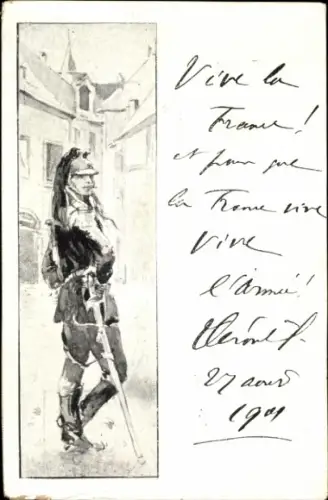 Vive la
France!
et pour que
la France vive
Vive
l'armée!
27 août
1901